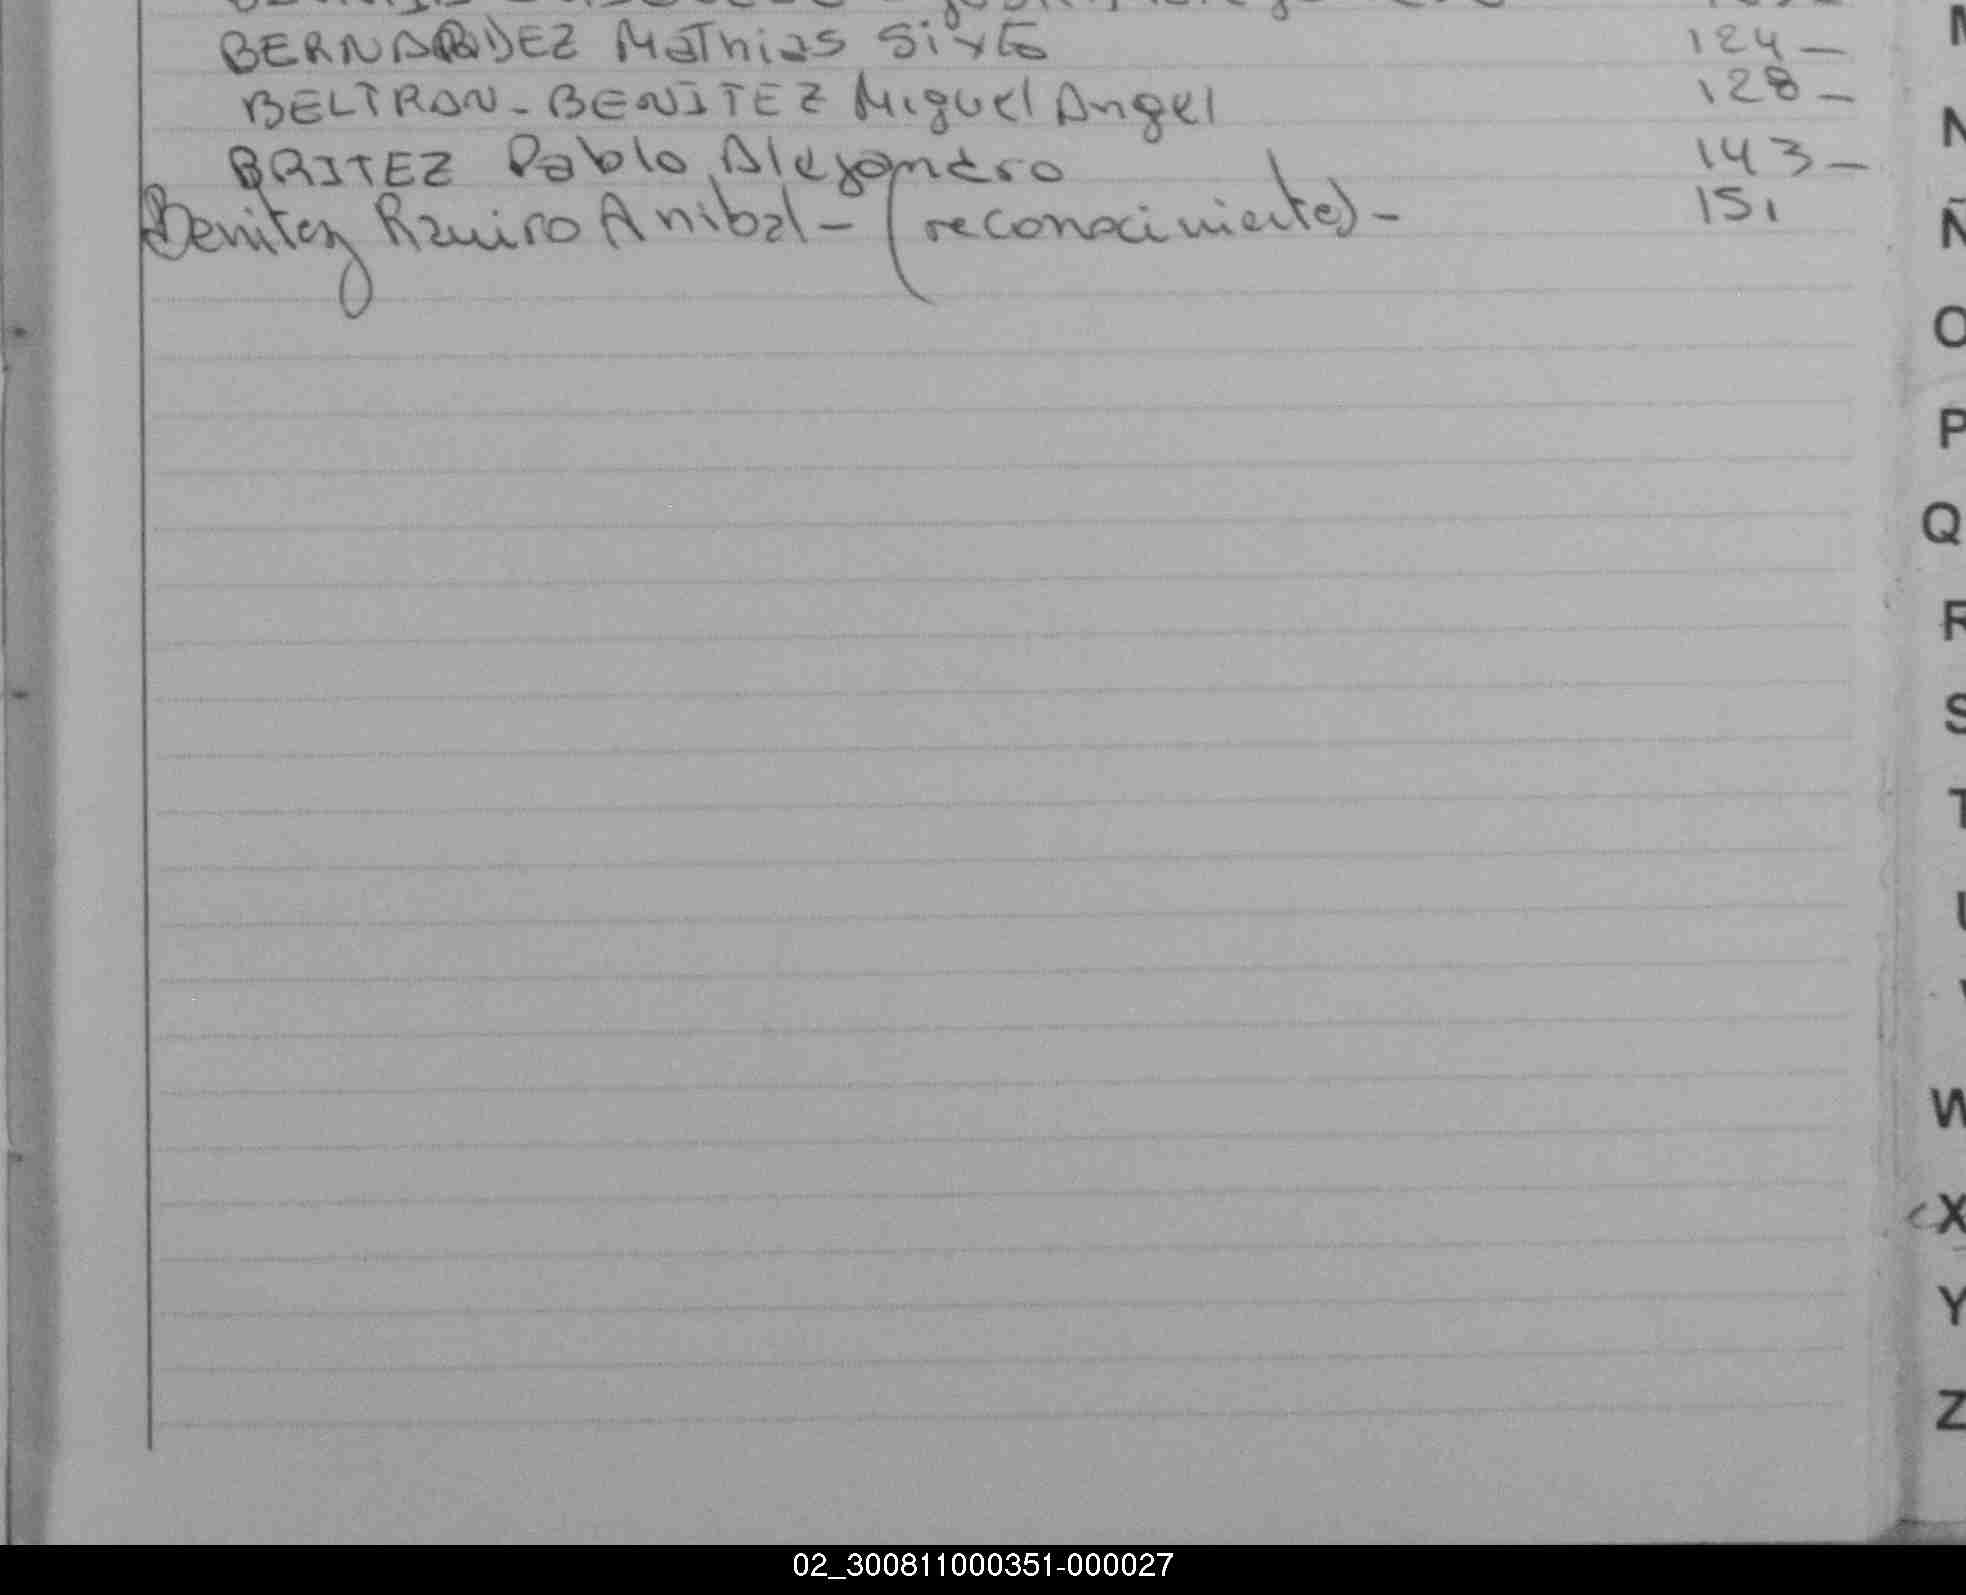 BERNARDEZ Mathias Sixto 124 —
BELTRAN - BENITEZ Miguel Angel 128 —
BRITEZ Pablo Alejandro 143 —
Benitez Ramiro Anibal - (reconocimiento) - 151
N
Ñ
O
P
Q
R
S
T
U
V
W
X
Y
Z
02_300811000351-000027